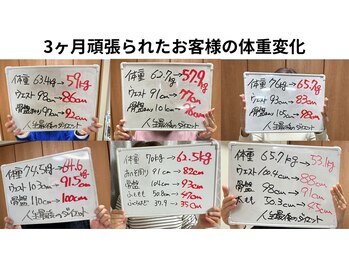 3ヶ月頑張られたお客様の体重変化
体重 63.4kg→59kg
ウエスト 98cm→86cm
骨盤 97cm→92cm
人生最後のダイエット
体重 62.7kg→57.9kg
ウエスト 91cm→77cm
骨盤
人生最後のダイエット
体重 →65.7kg
ウエスト 93cm→83cm
骨盤 105cm→98cm
人生最後のダイエット
体重 74.5kg→64.6kg
ウエスト 103cm→91.5cm
骨盤 110cm→100cm
人生最後のダイエット
体重 →62.5kg
91cm→82cm
骨盤 104cm→93cm
ふともも 50.8cm→47cm
ふくらはぎ 37.9→35cm
体重 65.7kg→53.1kg
ウエスト 100.4cm→88cm
骨盤 98cm→91cm
太もも 50.3cm→45cm
人生最後のダイエット